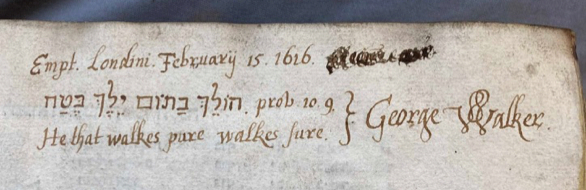 Empt. Londini. Februarij 15. 1616.
הולֵךְ בַתום יֵלֶךְ בֶטַח. prob 10. 9.
He that walkes pure walkes sure. } George Walker.